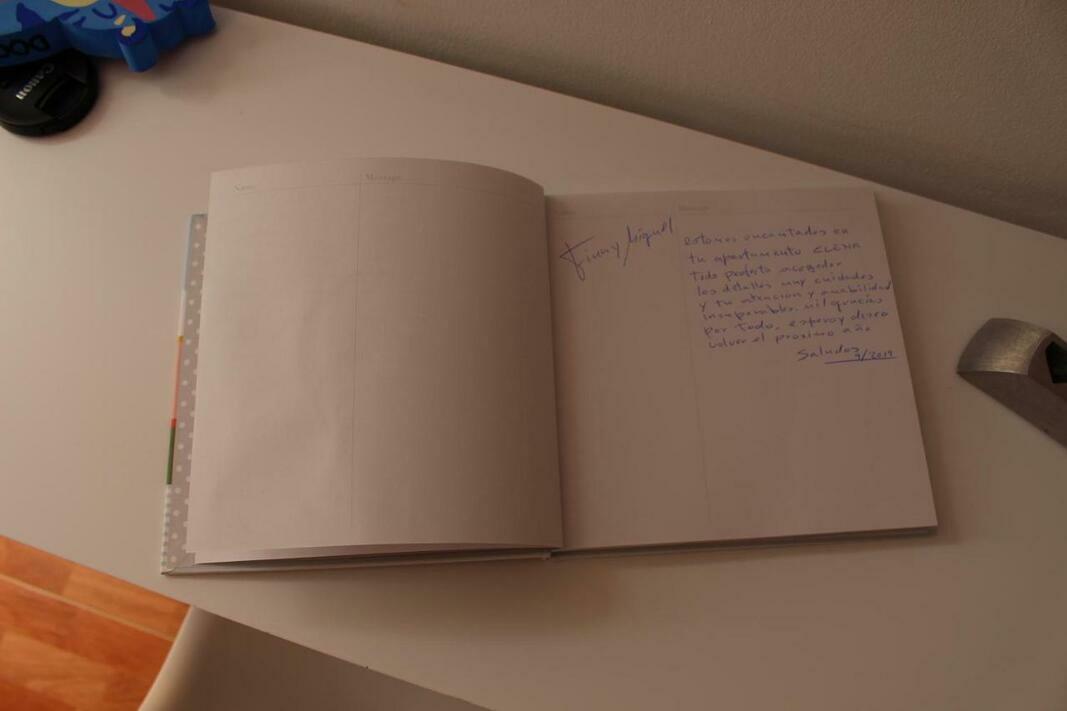 Canon
Name
Message
Message
y Miguel
estamos encantados en
tu apartamento ELENA
Todo perfecto acogedor
los detalles muy cuidados
y tu atencion y amabilidad
insuperables. mil gracias
por todo, espero y deseo
volver el proximo año
Saludos
9/2019